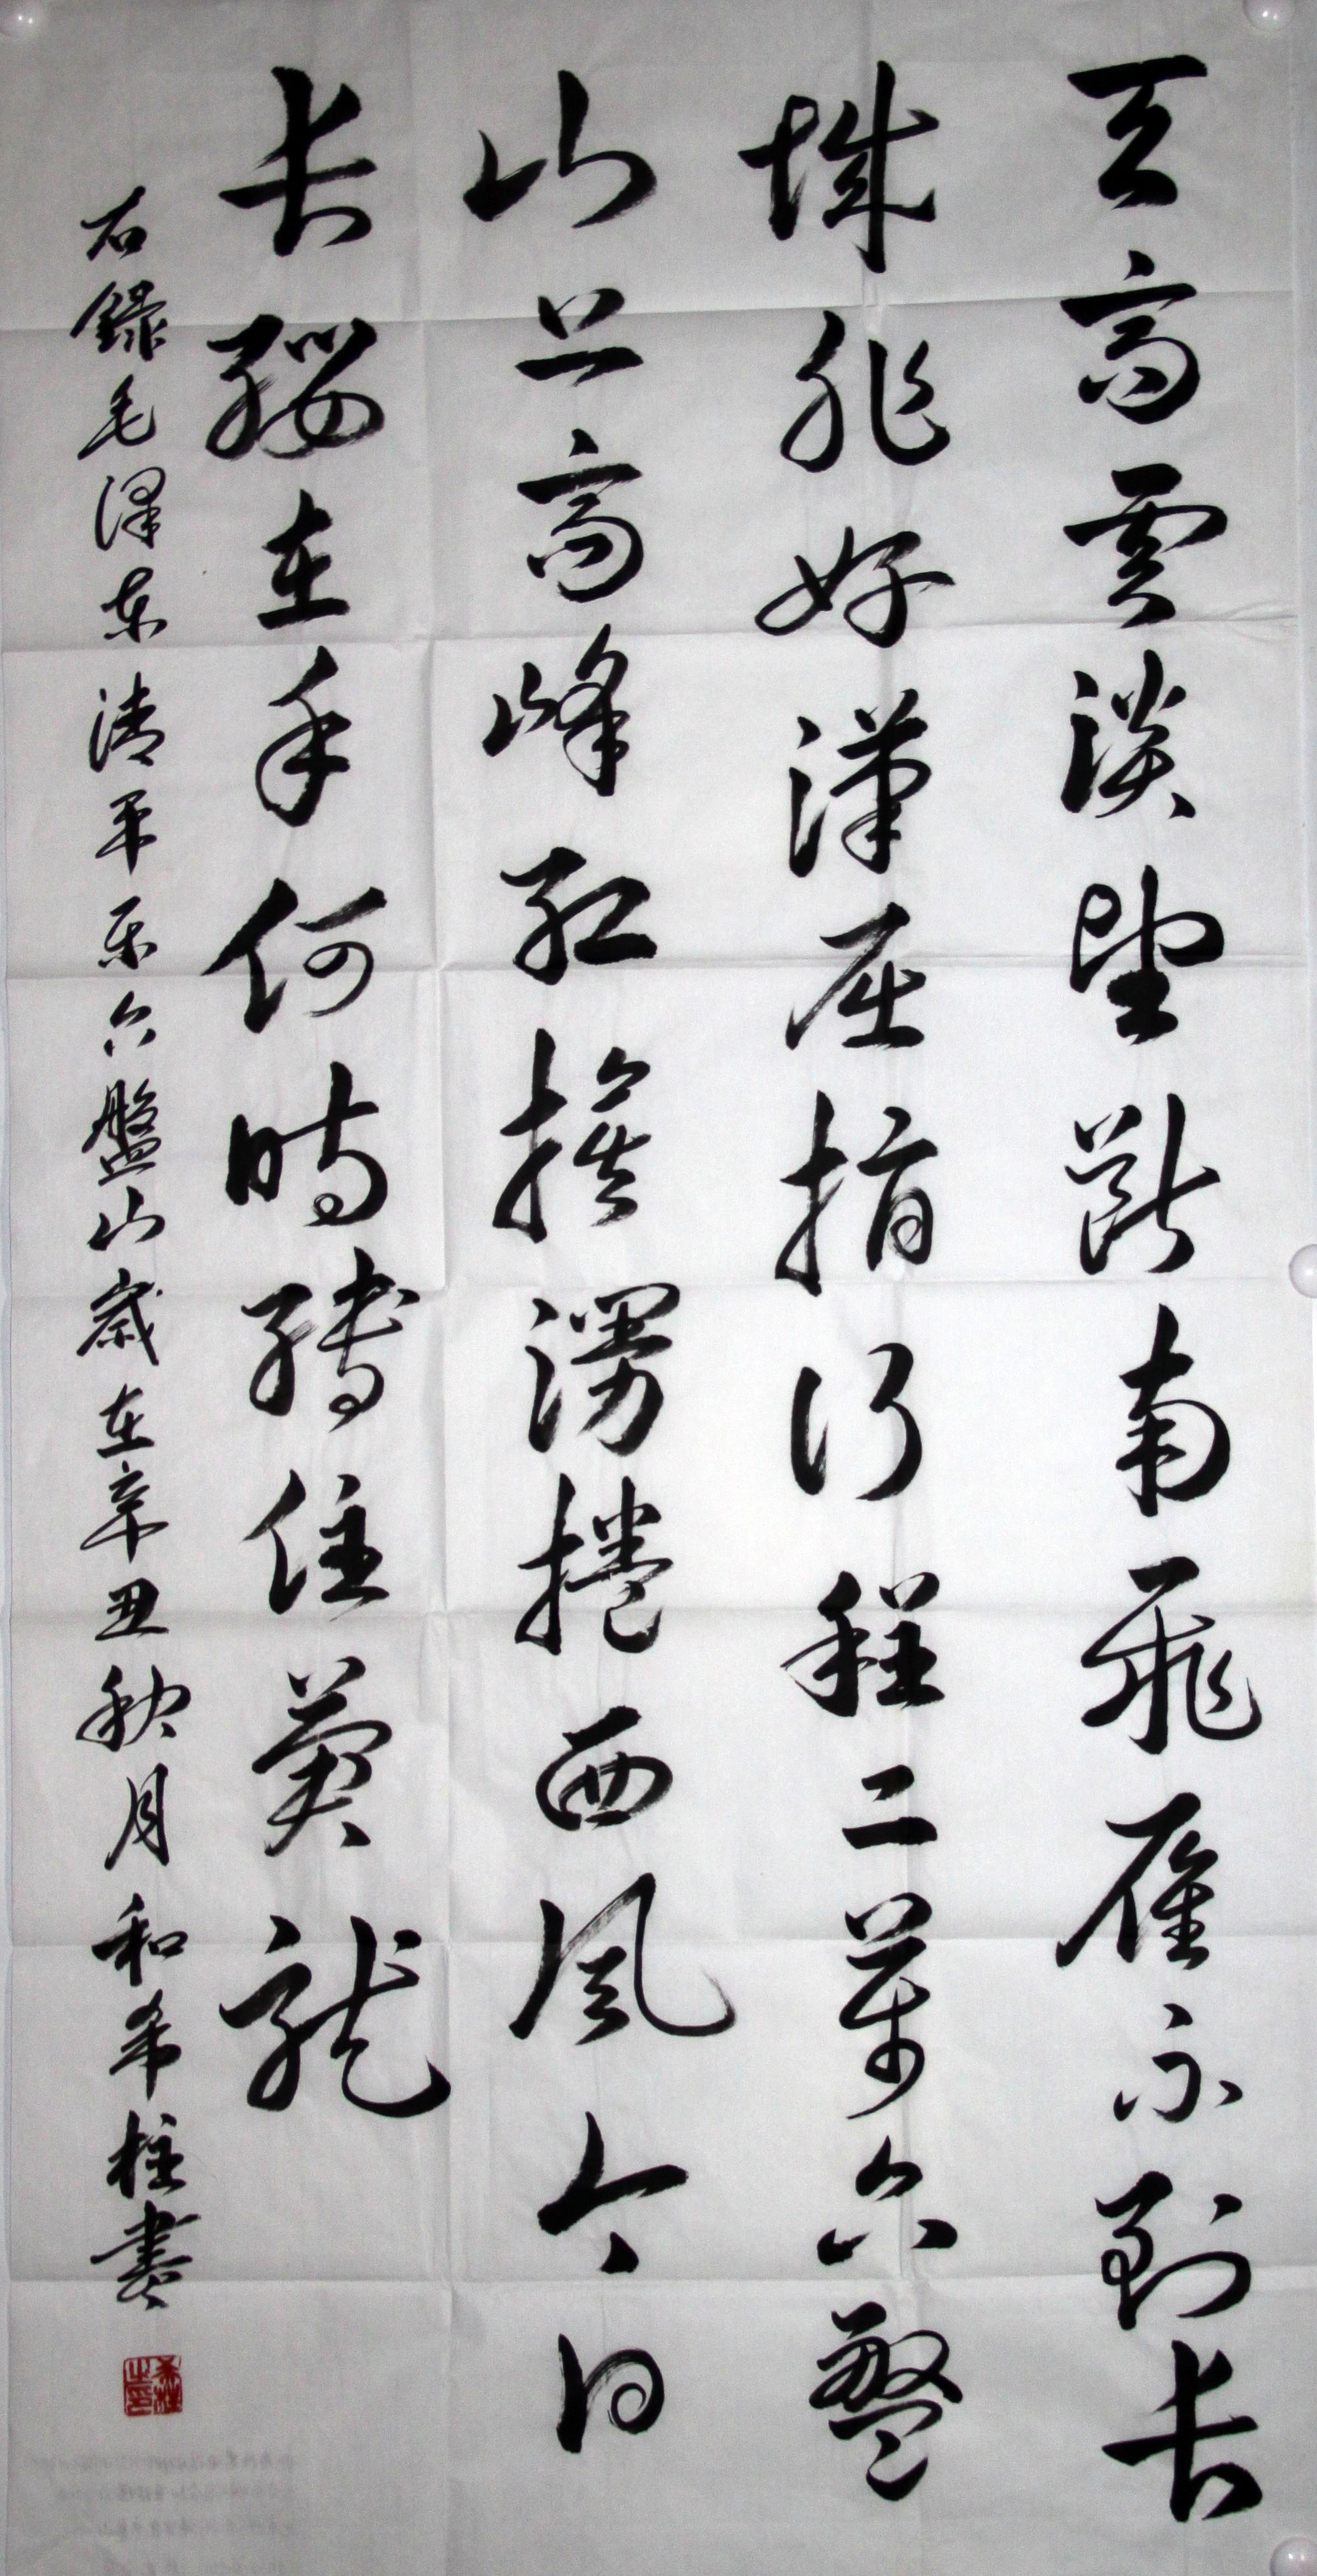 天高雲淡望斷南飛雁不到长
城非好漢屈指行程二萬六盤
山上高峰红旗漫捲西風今日
长缨在手何時縛住蒼龍
右錄毛澤东清平乐六盤山歲在辛丑秋月和希柱書
希柱之印